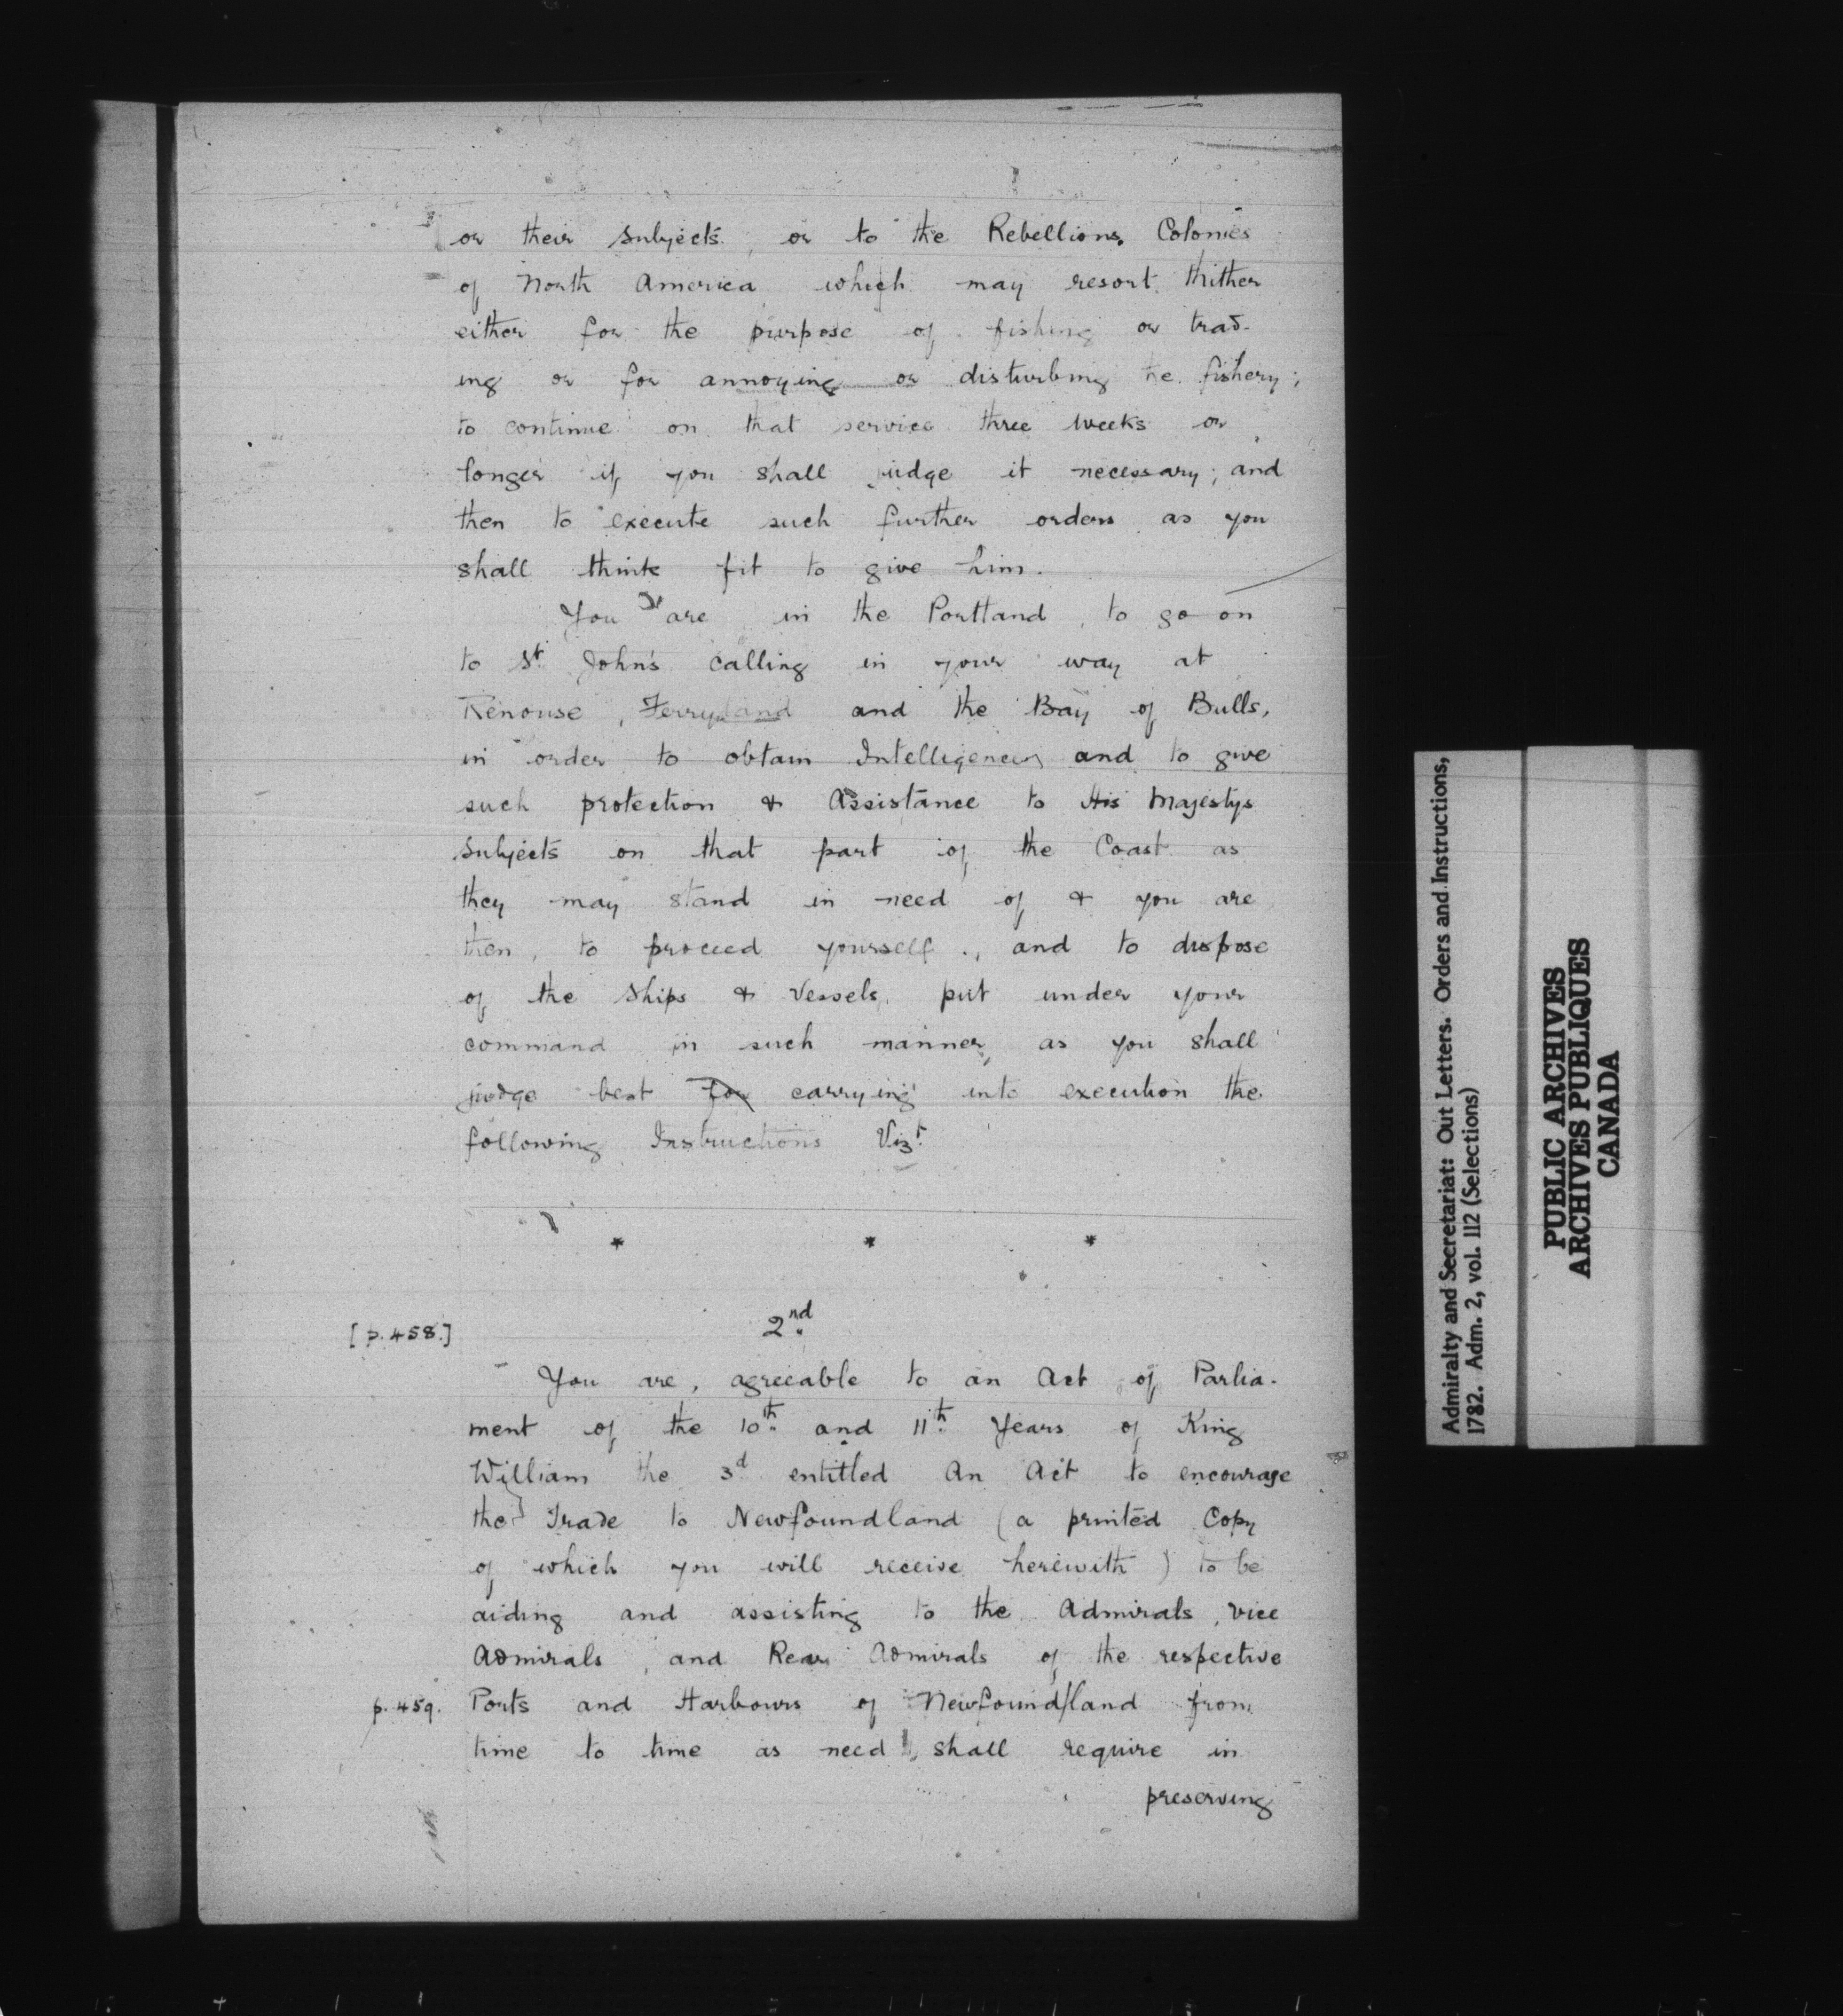 or their subjects, or to the Rebellious Colonies
of North America which may resort thither
either for the purpose of fishing or trad-
ing or for annoying or disturbing the fishery;
to continue on that service three weeks or
longer if you shall judge it necessary; and
then to execute such further orders as you
shall think fit to give him.
You are in the Portland, to go on
to St. John's calling in your way at
Renouse, Ferryland and the Bay of Bulls,
in order to obtain Intelligence, and to give
such protection & Assistance to His Majestys
subjects on that part of the Coast as
they may stand in need of & you are
then, to proceed yourself, and to dispose
of the Ships & Vessels, put under your
command in such manner, as you shall
judge best for carrying into execution the
following Instructions Vizt.
* * *
[p. 458.]
2nd.
You are, agreeable to an Act of Parlia-
ment of the 10th. and 11th. Years of King
William the 3d entitled An Act to encourage
the Trade to Newfoundland (a printed Copy
of which you will receive herewith) to be
aiding and assisting to the Admirals, Vice
Admirals, and Rear Admirals of the respective
p. 459. Ports and Harbours of Newfound/land from
time to time as need shall require in
preserving
Admiralty and Secretariat: Out Letters. Orders and Instructions,
1782. Adm. 2, vol. 112 (Selections)
PUBLIC ARCHIVES
ARCHIVES PUBLIQUES
CANADA